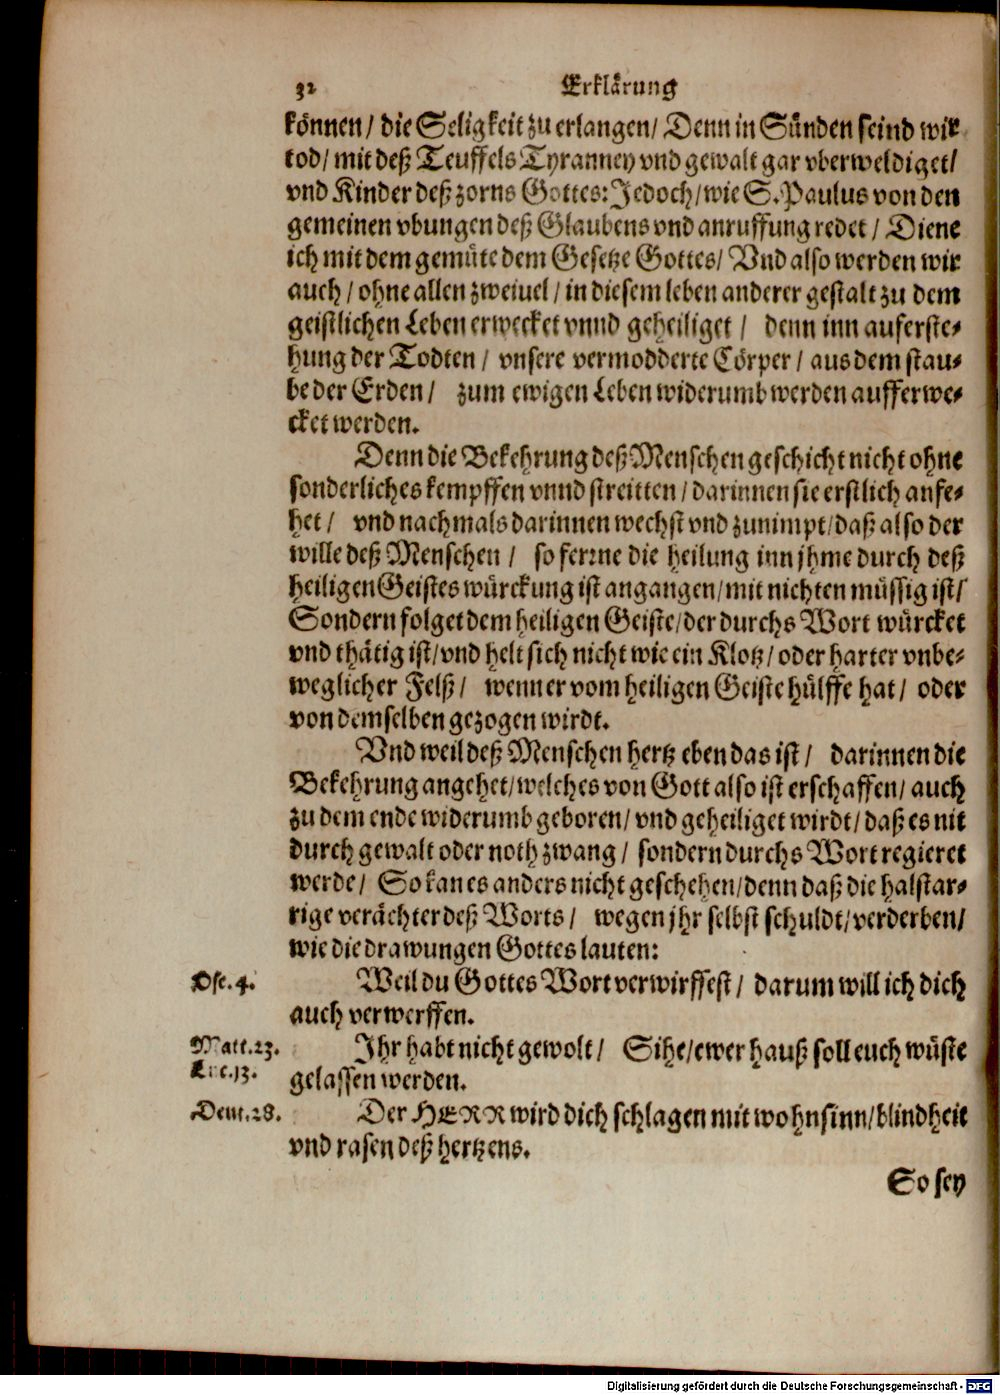 32 Erklärung
können/ die Seligkeit zu erlangen/ Denn in Sünden seind wir
tod/ mit deß Teuffels Tyranney vnd gewalt gar vberweldiget/
vnd Kinder deß zorns Gottes: Jedoch/ wie S. Paulus von den
gemeinen vbungen deß Glaubens vnd anruffung redet/ Diene
ich mit dem gemüte dem Gesetze Gottes/ Vnd also werden wir
auch/ ohne allen zweiuel/ in diesem leben anderer gestalt zu dem
geistlichen Leben erwecket vnnd geheiliget/ denn inn auferste-
hung der Todten/ vnsere vermodderte Cörper/ aus dem stau-
be der Erden/ zum ewigen Leben widerumb werden aufferwe-
cket werden.
Denn die Bekehrung deß Menschen geschicht nicht ohne
sonderliches kempffen vnnd streitten/ darinnen sie erstlich anfe-
het/ vnd nachmals darinnen wechst vnd zunimpt/ daß also der
wille deß Menschen/ so ferrne die heilung inn jhme durch deß
heiligen Geistes würckung ist angangen/ mit nichten müssig ist/
Sondern folget dem heiligen Geiste/ der durchs Wort würcket
vnd thätig ist/ vnd helt sich nicht wie ein Klotz/ oder harter vnbe-
weglicher Felß/ wenn er vom heiligen Geiste hülffe hat/ oder
von demselben gezogen wirdt.
Vnd weil deß Menschen hertz eben das ist/ darinnen die
Bekehrung angehet/ welches von Gott also ist erschaffen/ auch
zu dem ende widerumb geboren/ vnd geheiliget wirdt/ daß es nit
durch gewalt oder noth zwang/ sondern durchs Wort regieret
werde/ So kan es anders nicht geschehen/ denn daß die halstar-
rige verächter deß Worts/ wegen jhr selbst schuldt/ verderben/
wie die drawungen Gottes lauten:
Ose. 4. Weil du Gottes Wort verwirffest/ darum will ich dich
auch verwerffen.
Matt. 23. Ihr habt nicht gewolt/ Sihe/ ewer hauß soll euch wüste
Luc. 13. gelassen werden.
Deut. 28. Der HERR wird dich schlagen mit wohnsinn/ blindheit
vnd rasen deß hertzens.
So sey
Digitalisierung gefördert durch die Deutsche Forschungsgemeinschaft - DFG